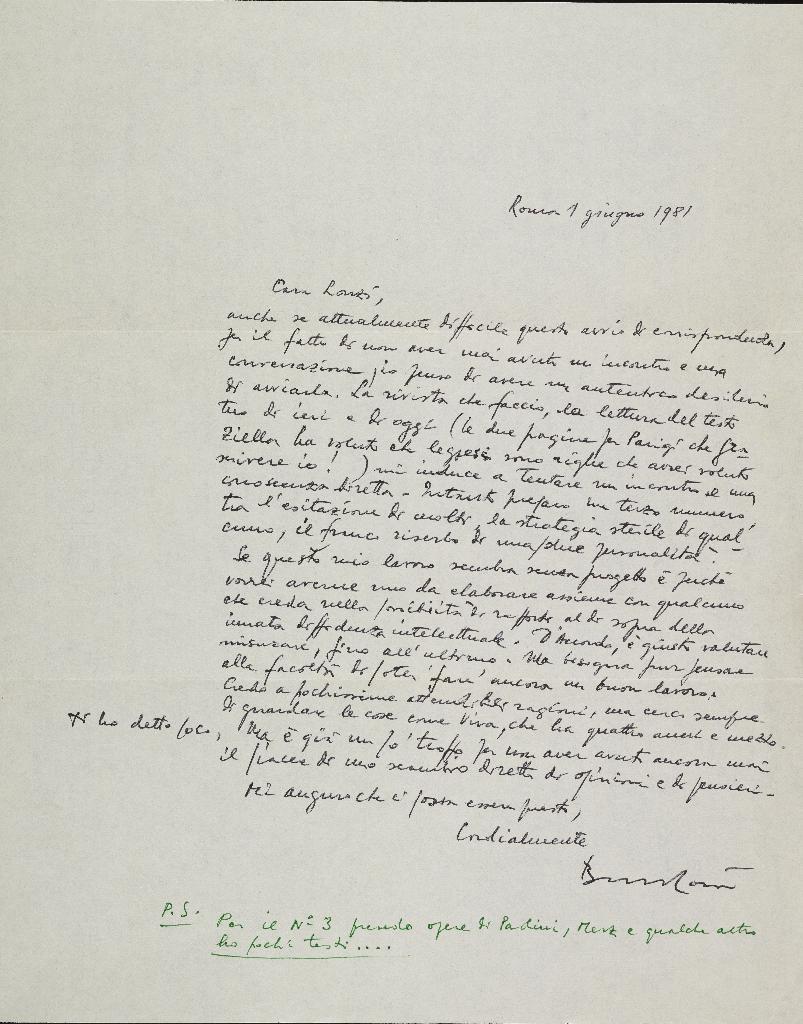 Roma 1 giugno 1981
Cara Lonzi,
anche se attualmente difficile questo avvio di corrispondenza,
per il fatto di non aver mai avuto un incontro e una
conversazione, io penso di avere un autentico desiderio
di avviarla. La rivista che faccio, la lettura del testo
tuo di ieri e di oggi (le due pagine per Parigi che Gra
ziella ha voluto che leggessi sono righe che avrei voluto
scrivere io! ) mi induce a tentare un incontro e una
conoscenza diretta. Intanto preparo un terzo numero
tra l'esitazione di molti, la strategia sterile di qual-
cuno, il franco riserbo di una/due personalità.
Se questo mio lavoro sembra senza progetto è perché
vorrei averne uno da elaborare assieme con qualcuno
che creda nella possibilità di rapporto al di sopra della
innata diffidenza intellettuale. D'accordo, è giusto valutare
misurare, fino all'ultimo. Ma bisogna pur pensare
alla facoltà di poter 'fare' ancora un buon lavoro.
Credo a pochissime attendibili ragioni, ma cerco sempre
di guardare le cose come Viva, che ha quattro anni e mezzo.
Ti ho detto poco, Ma è già un po' troppo per non aver avuto ancora mai
il piacere di uno scambio diretto di opinioni e di pensieri.
Mi auguro che ci possa essere presto,
Cordialmente
P.S. Per il N° 3 prendo opere di Paolini, Merz e qualche altro
ho pochi testi....